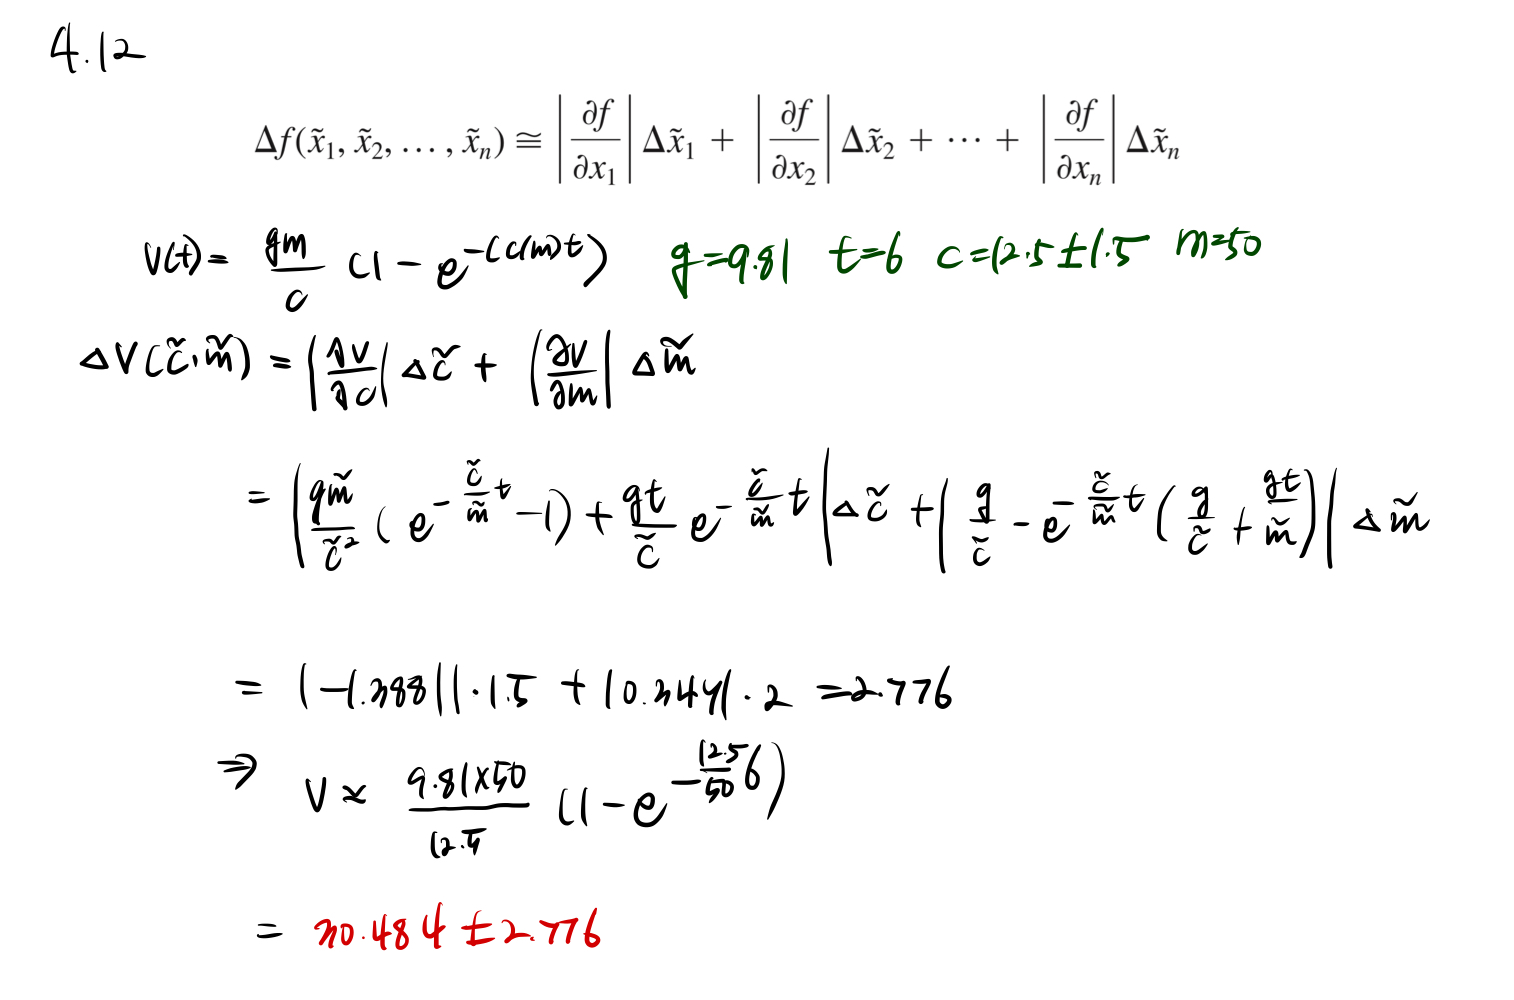 4.12
Δf(x̃₁, x̃₂, . . . , x̃ₙ) ≅ |∂f/∂x₁| Δx̃₁ + |∂f/∂x₂| Δx̃₂ + ··· + |∂f/∂xₙ| Δx̃ₙ
V(t) = gm/c (1 - e^(-(c/m)t)) g=9.81 t=6 c=12.5±1.5 m=50
ΔV(c̃, m̃) = |∂V/∂c| Δc̃ + |∂V/∂m| Δm̃
= |gm̃/c̃² (e^(-c̃/m̃ t) - 1) + gt/c̃ e^(-c̃/m̃ t)| Δc̃ + |g/c̃ - e^(-c̃/m̃ t) (g/c̃ + gt/m̃)| Δm̃
= |-1.388|| · 1.5 + |0.347| · 2 = 2.776
⇒ V ≈ 9.81×50/12.5 (1 - e^(-12.5/50 6))
= 30.484 ± 2.776